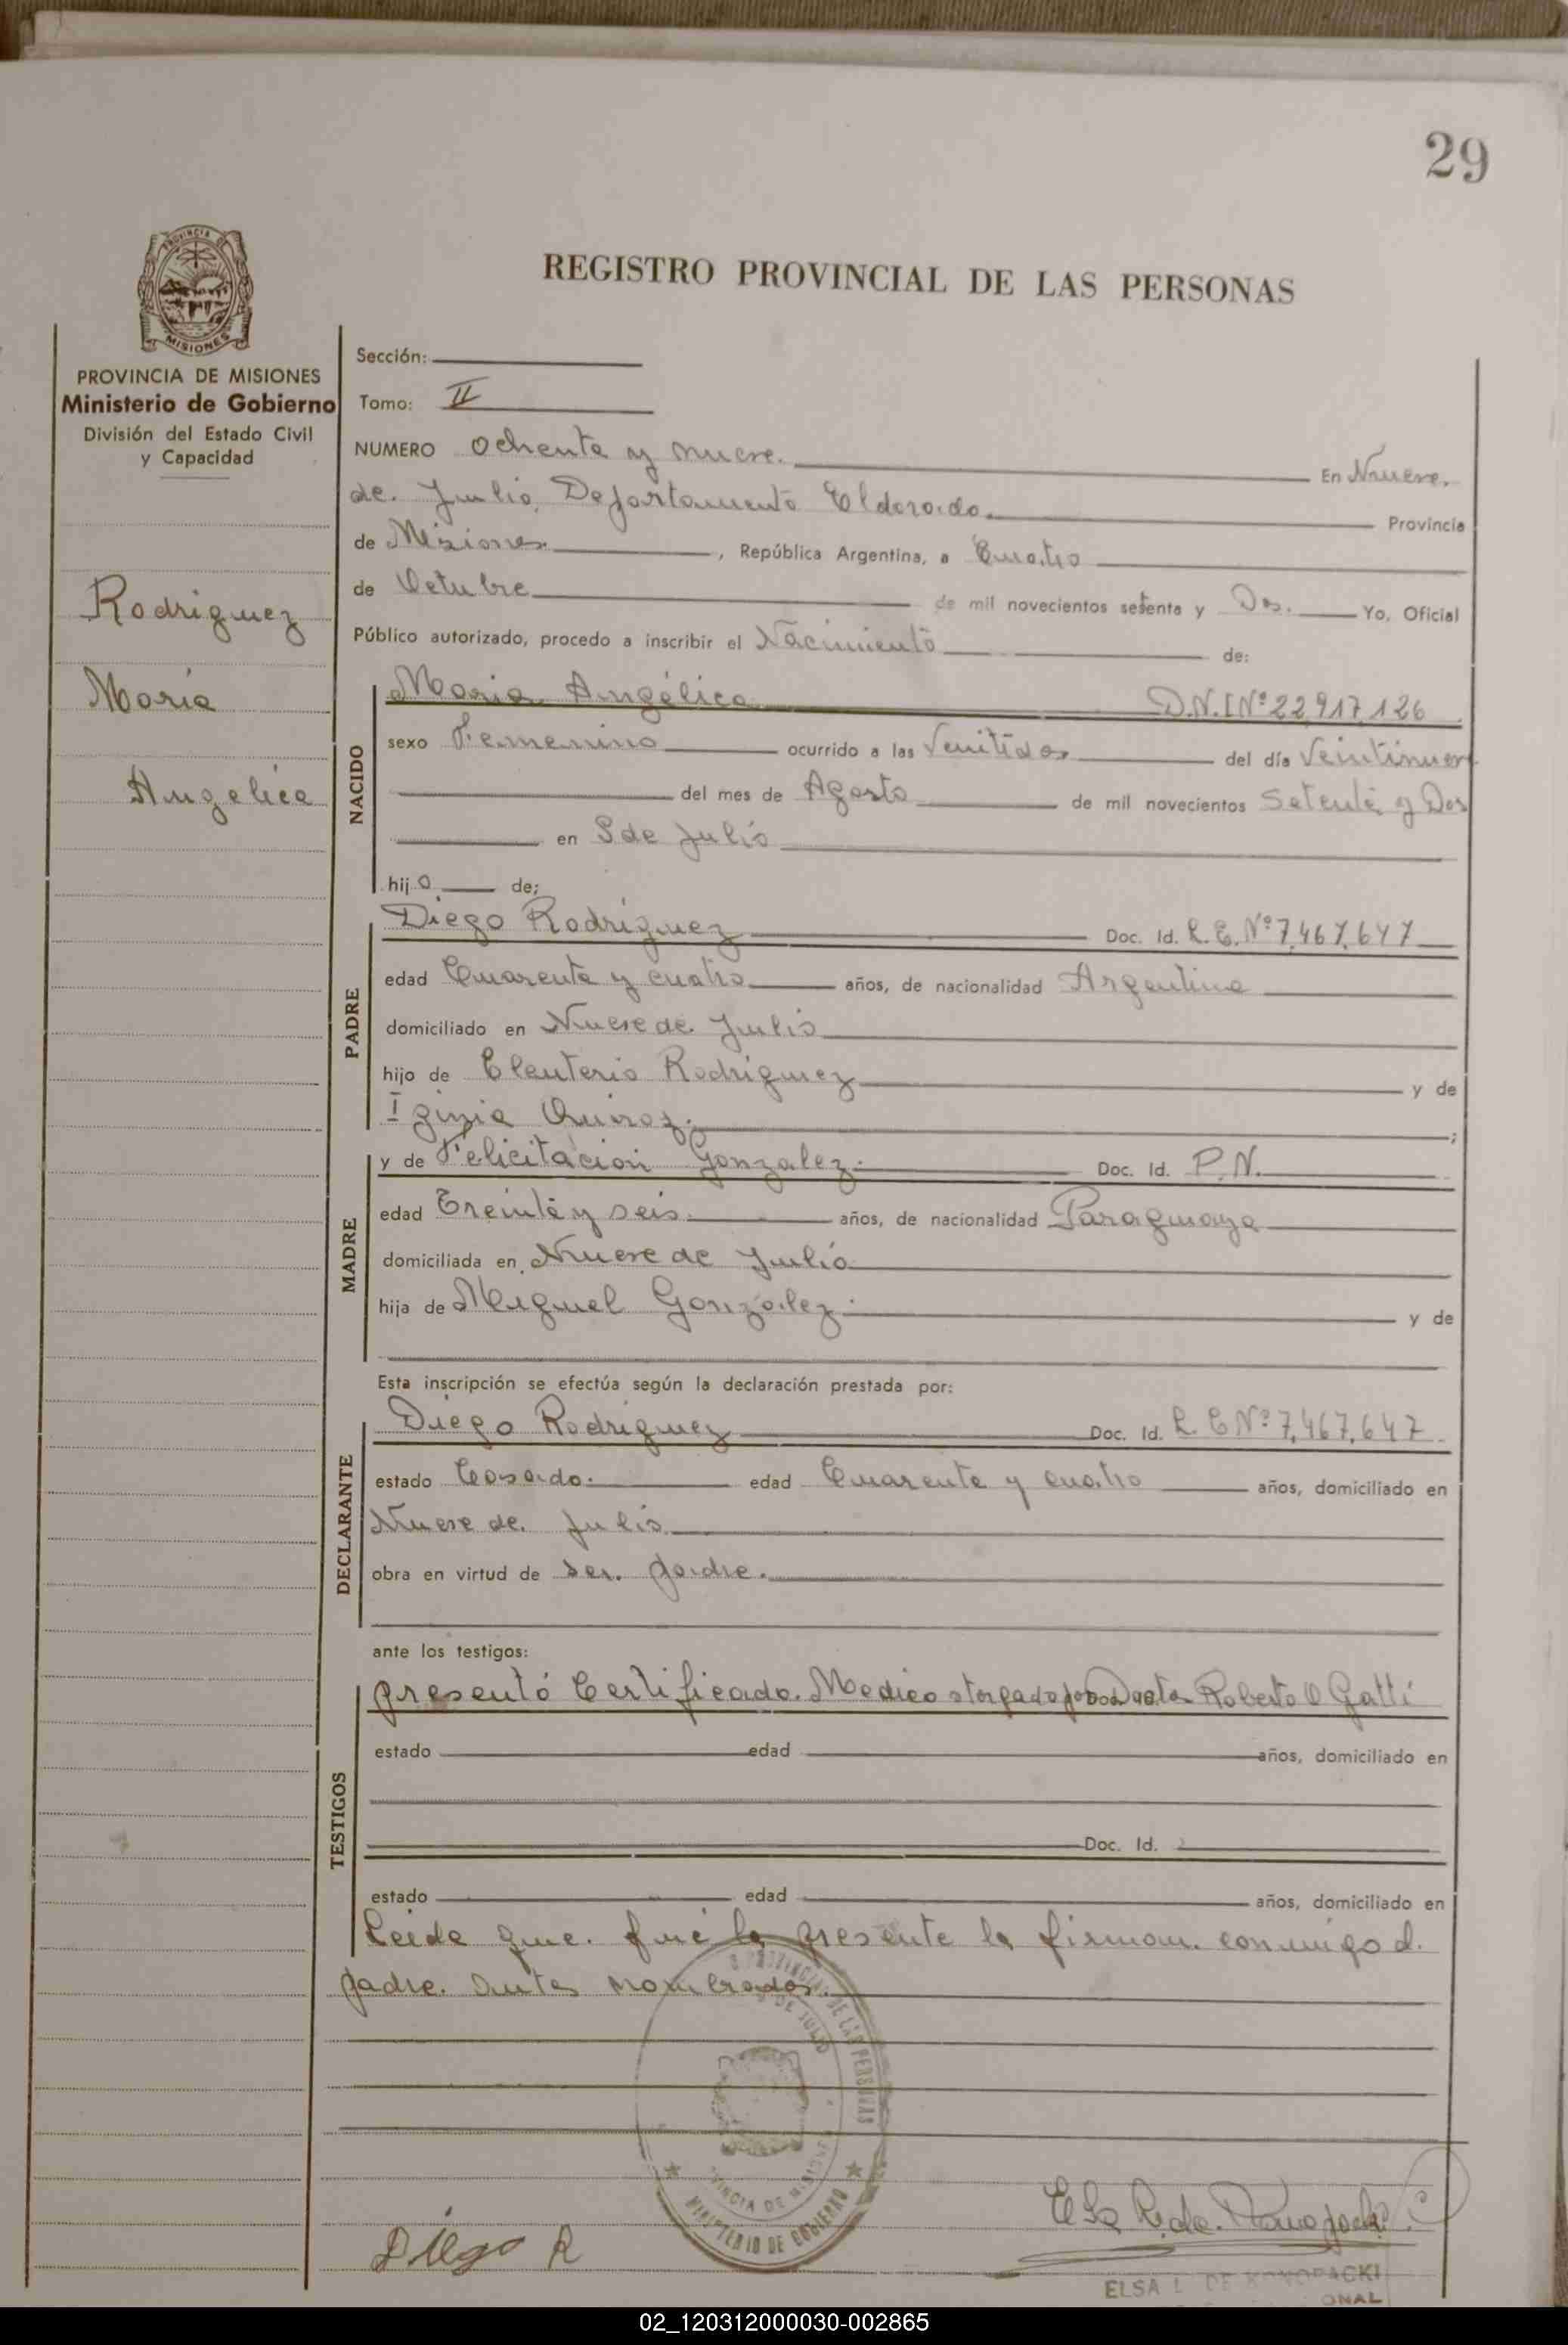 29
PROVINCIA DE
MISIONES
REGISTRO PROVINCIAL DE LAS PERSONAS
PROVINCIA DE MISIONES
Ministerio de Gobierno
División del Estado Civil
y Capacidad
Rodriguez
Maria
Angelica
Sección:
Tomo: II
NUMERO Ochenta y nueve. En Nueve.
de. Julio. Departamento Eldorado. Provincia
de Misiones. , República Argentina, a Cuatro
de Octubre de mil novecientos setenta y Dos. Yo, Oficial
Público autorizado, procedo a inscribir el Nacimiento de:
NACIDO
Maria Angélica D.N.I Nº 22,917,126
sexo Femenino ocurrido a las Venitidos del día Veintinueve
del mes de Agosto de mil novecientos Setenta y Dos
en 9 de Julio
hij a de;
PADRE
Diego Rodríguez Doc. Id. L.E. Nº 7,467,647
edad Cuarenta y cuatro años, de nacionalidad Argentina
domiciliado en Nueve de Julio
hijo de Eleuterio Rodriguez y de
Iginia Quiroz. ;
MADRE
y de Felicitación Gonzalez. Doc. Id. P.N.
edad Treinta y seis. años, de nacionalidad Paraguaya
domiciliada en Nueve de Julio
hija de Miguel González. y de
Esta inscripción se efectúa según la declaración prestada por:
DECLARANTE
Diego Rodriguez Doc. Id. L.E Nº 7,467,647
estado Casado. edad Cuarenta y cuatro años, domiciliado en
Nueve de. Julio.
obra en virtud de ser. padre.
ante los testigos:
TESTIGOS
presentó Certificado. Medico otorgado por Doctor Roberto O Gatti
estado edad años, domiciliado en
Doc. Id.
estado edad años, domiciliado en
Leida que. fué la presente la firman. conmigo el.
padre. antes nombrados.
PROVINCIAL DE LAS PERSONAS
9 DE JULIO
PROVINCIA DE MISIONES
MINISTERIO DE GOBIERNO
Diego R
Elsa L. de. Konopacki
ELSA L. DE KONOPACKI
ONAL
02_120312000030-002865